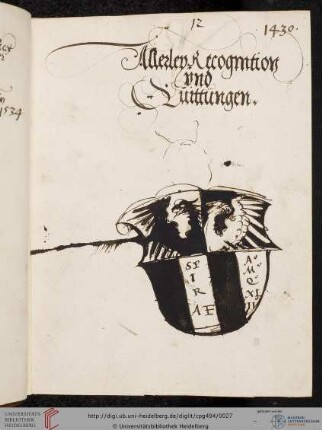 12
1430.
Allerley Recognition
vnd
Quittungen.
1534
SP
I
R
AE
A
M
Q
XL
II
UNIVERSITÄTS-
BIBLIOTHEK
HEIDELBERG
http://digi.ub.uni-heidelberg.de/diglit/cpg494/0027
© Universitätsbibliothek Heidelberg